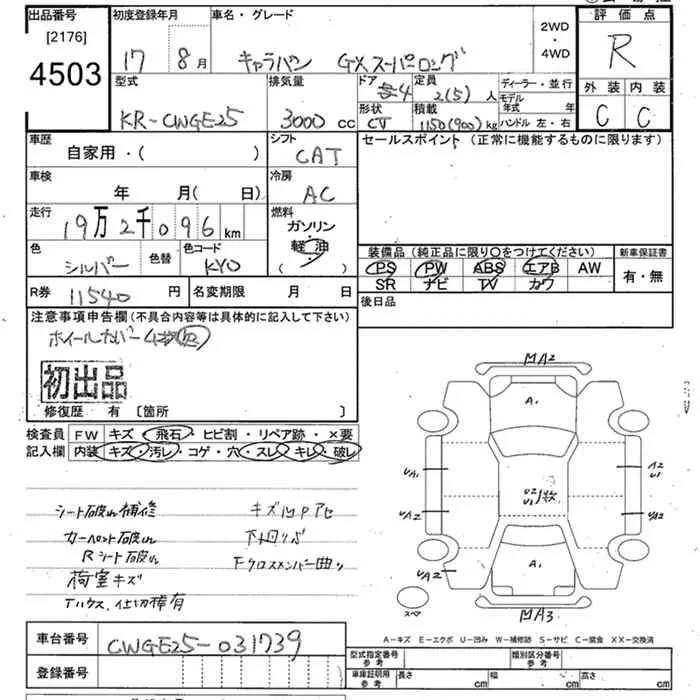 出品番号 初度登録年月 車名・グレード 2WD・4WD 評価点
[2176]
4503
17 8月 キャラバン GXスーパーロング R
型式 排気量 ドア 定員 ディーラー・並行 外装 内装
KR-CWGE25 3000cc 4 2(5)人 モデル年式 年
形状 積載 ハンドル 左・右 C C
1150(900)kg
車歴 シフト セールスポイント(正常に機能するものに限ります)
自家用・( ) CAT
車検 冷房
年 月( 日) AC
走行 燃料
19万2千096km ガソリン
軽油
( )
色 色替 色コード 装備品(純正品に限り○をつけてください) 新車保証書
シルバー KYO PS PW ABS エアB AW 有・無
SR ナビ TV カワ
R券 11540円 名変期限 月 日 後日品
注意事項申告欄(不具合内容等は具体的に記入して下さい)
ホイールカバー
初出品
修復歴 有 [箇所 ]
検査員 FW キズ・飛石・ヒビ割・リペア跡・×要
記入欄 内装 キズ・汚レ・コゲ・穴・スレ・キレ・破レ
MA2
A1
UA1 A2 U1
U2 U1 1枚
UA2 UA2
A1
UA2
スペア
MA3
シート破れ補修
カーペット破れ 下廻りサビ
Rシート破れ 下クロスメンバー曲り
荷室キズ
Tハウス、仕切棒有
A-キズ E-エクボ U-凹み W-補修跡 S-サビ C-腐食 XX-交換済
車台番号 CWGE25-031739
登録番号
型式指定番号 参考 類別区分番号 参考
車庫証明用 参考 長さ cm 幅 cm 高さ cm